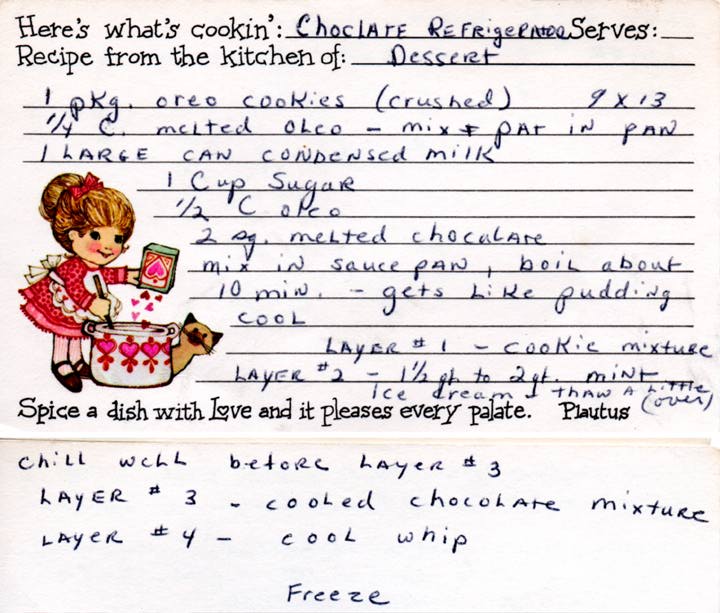 Here's what's cookin': Choclate Refrigerator Serves:
Recipe from the kitchen of: Dessert
1 pkg. oreo cookies (crushed) 9 x 13
1/4 C. melted oleo - mix & pat in pan
1 Large can condensed milk
1 Cup Sugar
1/2 C oleo
2 sq. melted chocalate
mix in sauce pan, boil about
10 min. - gets like pudding
cool
Layer #1 - cookie mixture
Layer #2 - 1 1/2 qt to 2 qt. mint
ice cream - thaw a little
(over)
Spice a dish with Love and it pleases every palate. Plautus
chill well before Layer #3
Layer #3 - cooled chocolate mixture
Layer #4 - cool whip
Freeze